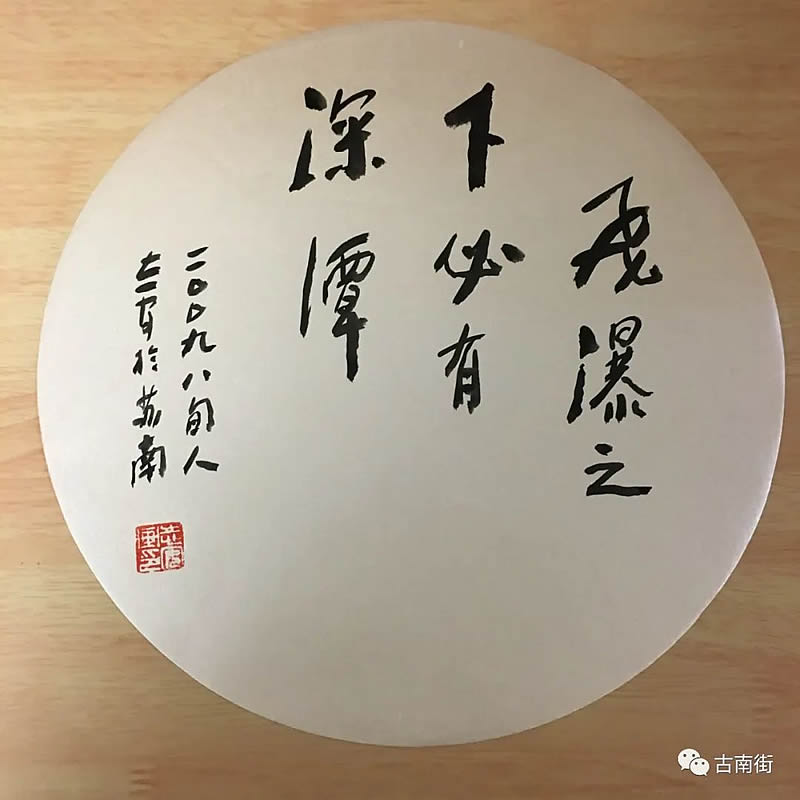 飞瀑之
下必有
深潭
二〇〇九八旬人
於苏南
古南街